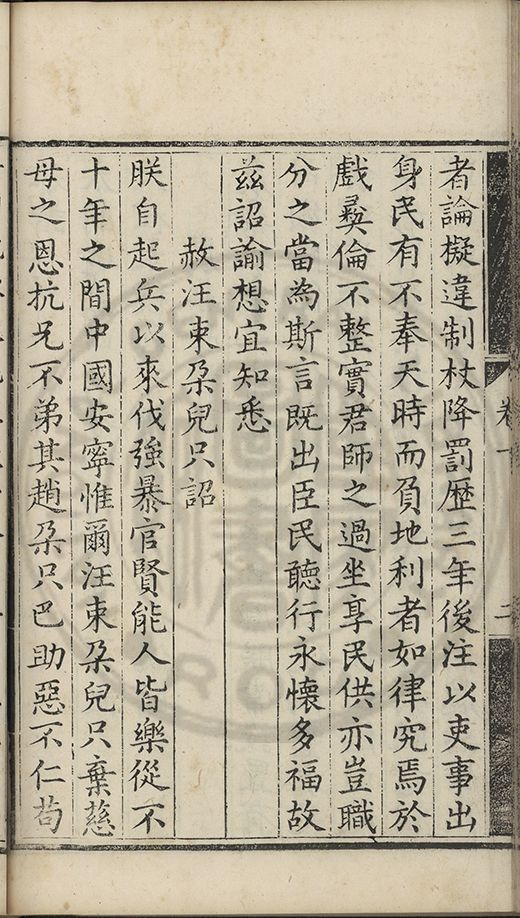 者論擬違制杖降罰歷三年後注以吏事出
身民有不奉天時而負地利者如律究焉於
戲彝倫不整實君師之過坐享民供亦豈職
分之當為斯言既出臣民聽行永懷多福故
茲詔諭想宜知悉
赦汪束朶兒只詔
朕自起兵以來伐強暴官賢能人皆樂從不
十年之間中國安寧惟爾汪束朶兒只棄慈
母之恩抗兄不弟其趙朶只巴助惡不仁茍
卷一
二